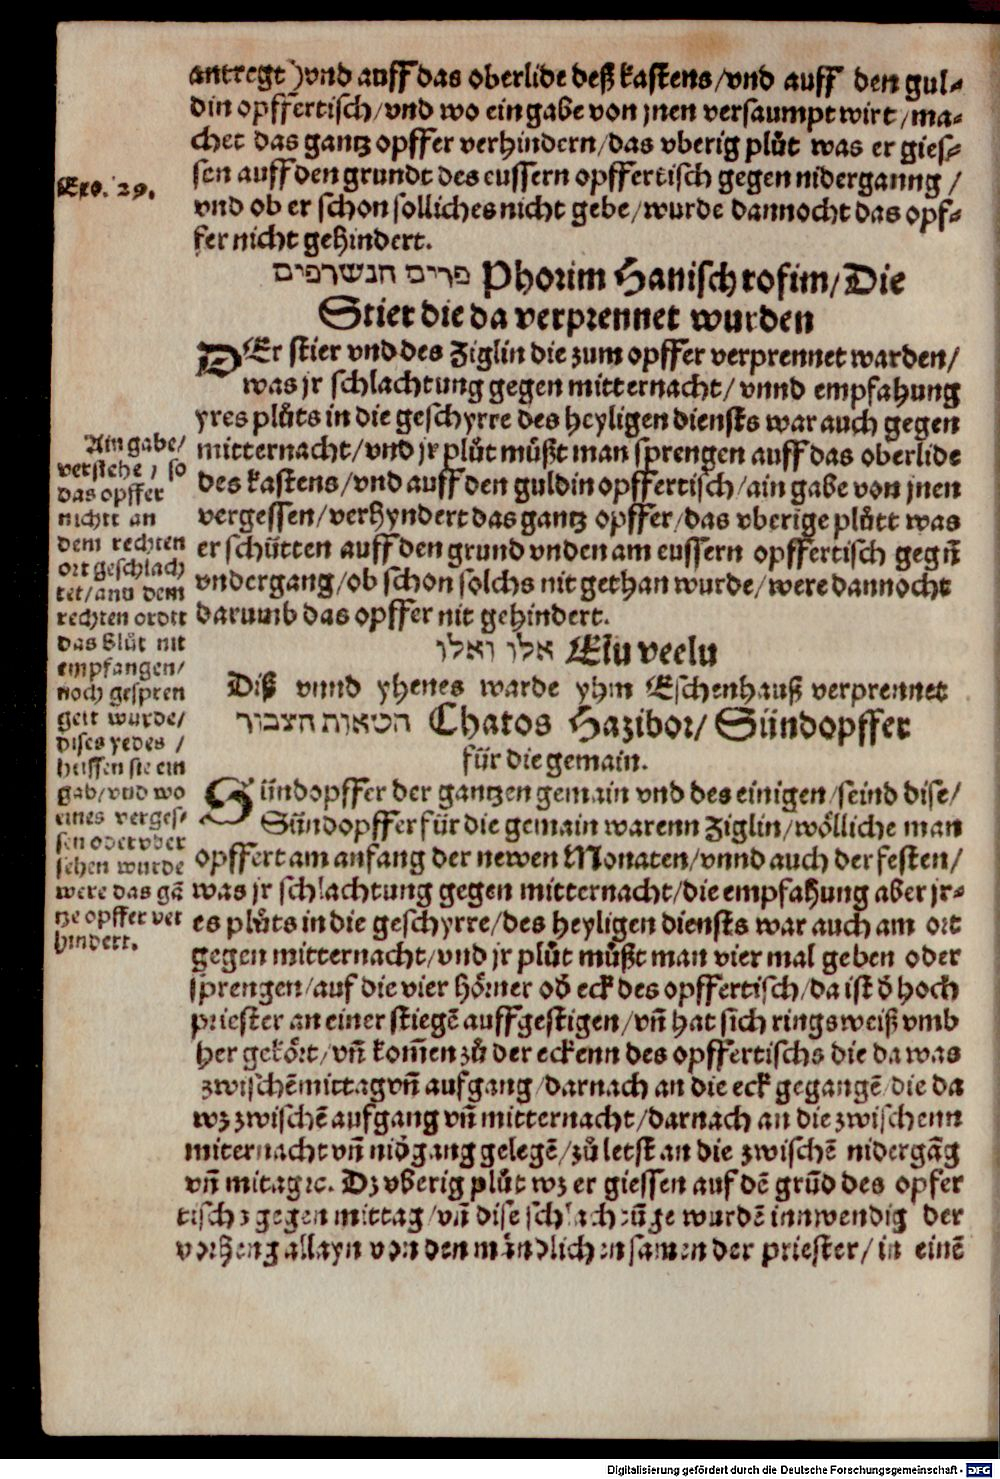 antregt) vnd auff das oberlide deß kastens/vnd auff den gul-
din opffertisch/vnd wo ein gabe von jnen versaumpt wirt/ma-
chet das gantz opffer verhindern/das vberig plůt was er gies-
sen auff den grundt des eussern opffertisch gegen niderganng/
vnd ob er schon solliches nicht gebe/wurde dannocht das opf-
fer nicht gehindert.
Exo. 29.
פרים הנשרפים Phorim Hanischrofim/Die
Stier die da verprennet wurden
DEr stier vnd des Ziglin die zum opffer verprennet warden/
was jr schlachtung gegen mitternacht/vnnd empfahung
yres plůts in die geschyrre des heyligen diensts war auch gegen
mitternacht/vnd jr plůt můßt man sprengen auff das oberlide
des kastens/vnd auff den guldin opffertisch/ain gabe von jnen
vergessen/verhyndert das gantz opffer/das vberige plůtt was
er schütten auff den grund vnden am eussern opffertisch gegñ
vndergang/ob schon solchs nit gethan wurde/were dannocht
darumb das opffer nit gehindert.
Ain gabe/
verstehe, so
das opffer
nichtt an
dem rechten
ort geschlach
tet/ann dem
rechten ordtt
das Blůt nit
empfangen/
noch gespren
geit wurde/
dises yedes/
heissen sie ein
gab/vnd wo
eines verges-
sen oder vber
sehen wurde
were das gā
tze opffer ver
hindert.
אלו ואלו Elu veelu
Diß vnnd yhenes warde yhm Eschenhauß verprennet
חטאות הצבור Chatos Hazibor/Sündopffer
für die gemain.
Sündopffer der gantzen gemain vnd des einigen/seind dise/
Sündopffer für die gemain warenn Ziglin/wölliche man
opffert am anfang der newen Monaten/vnnd auch der festen/
was jr schlachtung gegen mitternacht/die empfahung aber jr-
es plůts in die geschyrre/des heyligen diensts war auch am ort
gegen mitternacht/vnd jr plůt můßt man vier mal geben oder
sprengen/auf die vier hörner oð eck des opffertisch/da ist ð hoch
priester an einer stiegē auffgestigen/vñ hat sich ringsweiß vmb
her gekört/vñ kom̄en zů der eckenn des opffertischs die da was
zwischē mittag vñ aufgang/darnach an die eck gegangē/die da
wz zwischē aufgang vñ mitternacht/darnach an die zwischenn
miternacht vñ niðgang gelegē/zů letst an die zwischē nidergāg
vñ mitag ꝛc. Dz vberig plůt wz er giessen auf dē grūd des opfer
tischz gegen mittag/vñ dise schlachtūge wurdē innwendig der
vorheng allayn von den mändlichen samen der priester/in einē
Digitalisierung gefördert durch die Deutsche Forschungsgemeinschaft - DFG